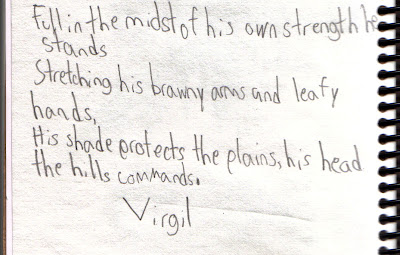 Full in the midst of his own strength he
stands
Stretching his brawny arms and leafy
hands,
His shade protects the plains, his head
the hills commands.
Virgil